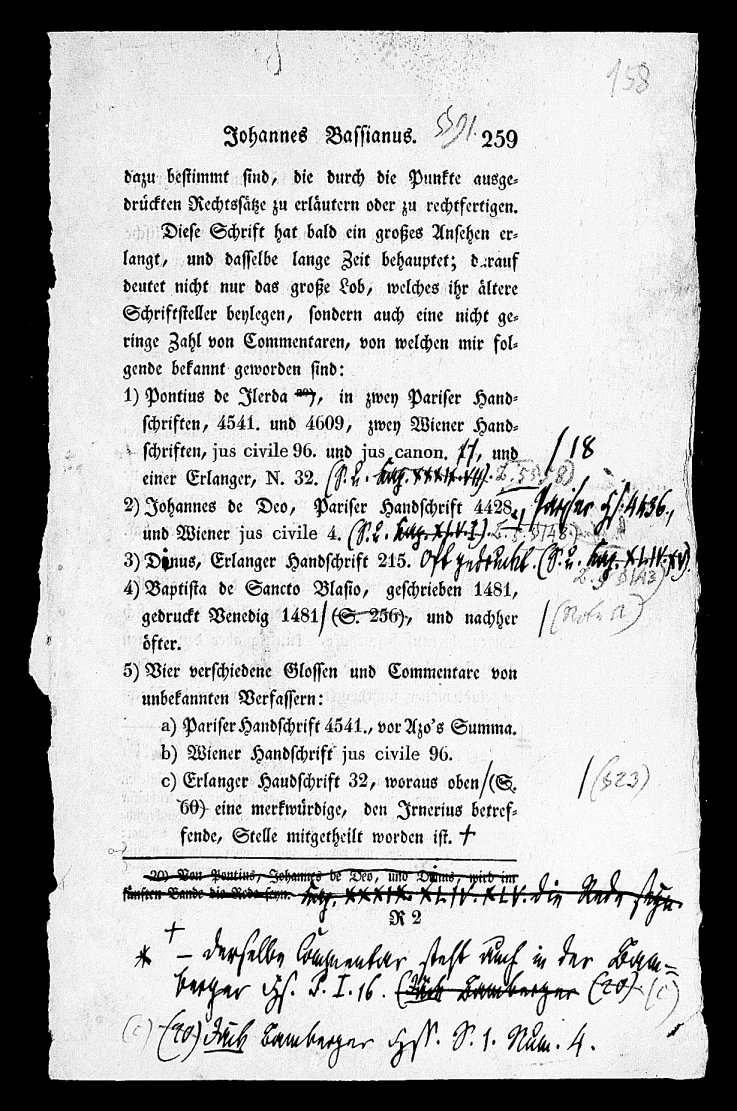 158
Johannes Bassianus. 259
dazu bestimmt sind, die durch die Punkte ausge-
drückten Rechtssätze zu erläutern oder zu rechtfertigen.
Diese Schrift hat bald ein großes Ansehen er-
langt, und dasselbe lange Zeit behauptet; darauf
deutet nicht nur das große Lob, welches ihr ältere
Schriftsteller beylegen, sondern auch eine nicht ge-
ringe Zahl von Commentaren, von welchen mir fol-
gende bekannt geworden sind:
1) Pontius de Ilerda 20), in zwey Pariser Hand-
schriften, 4541. und 4609, zwey Wiener Hand-
schriften, jus civile 96. und jus canon. und / 18
einer Erlanger, N. 32. (S. u. Kap. XXXIX. VII).
2) Johannes de Deo, Pariser Handschrift 4428, Pariser Hs. 4436.,
und Wiener jus civile 4. (S. u. Kap. XLVI).
3) Dinus, Erlanger Handschrift 215. Oft gedruckt. (S. u. Kap. XLIV. XV).
4) Baptista de Sancto Blasio, geschrieben 1481,
gedruckt Venedig 1481 / (S. 256), und nachher / (Note a)
öfter.
5) Vier verschiedene Glossen und Commentare von
unbekannten Verfassern:
a) Pariser Handschrift 4541., vor Azo's Summa.
b) Wiener Handschrift jus civile 96.
c) Erlanger Haudschrift 32, woraus oben / (S. / (623)
60) eine merkwürdige, den Irnerius betref-
fende, Stelle mitgetheilt worden ist. †
20) Von Pontius, Johannes de Deo, und Dinus, wird im
fünften Bande die Rede seyn. Kap. XXXIX. XLIV. XLV. die Rede seyn.
R 2
†
* – derselbe Commentar steht auch in der Bam=
berger Hs. P. I. 16. (Jäck Bamberger (20) (c)
(c) (20) Jäck Bamberger Hss. S. 1. Num. 4.